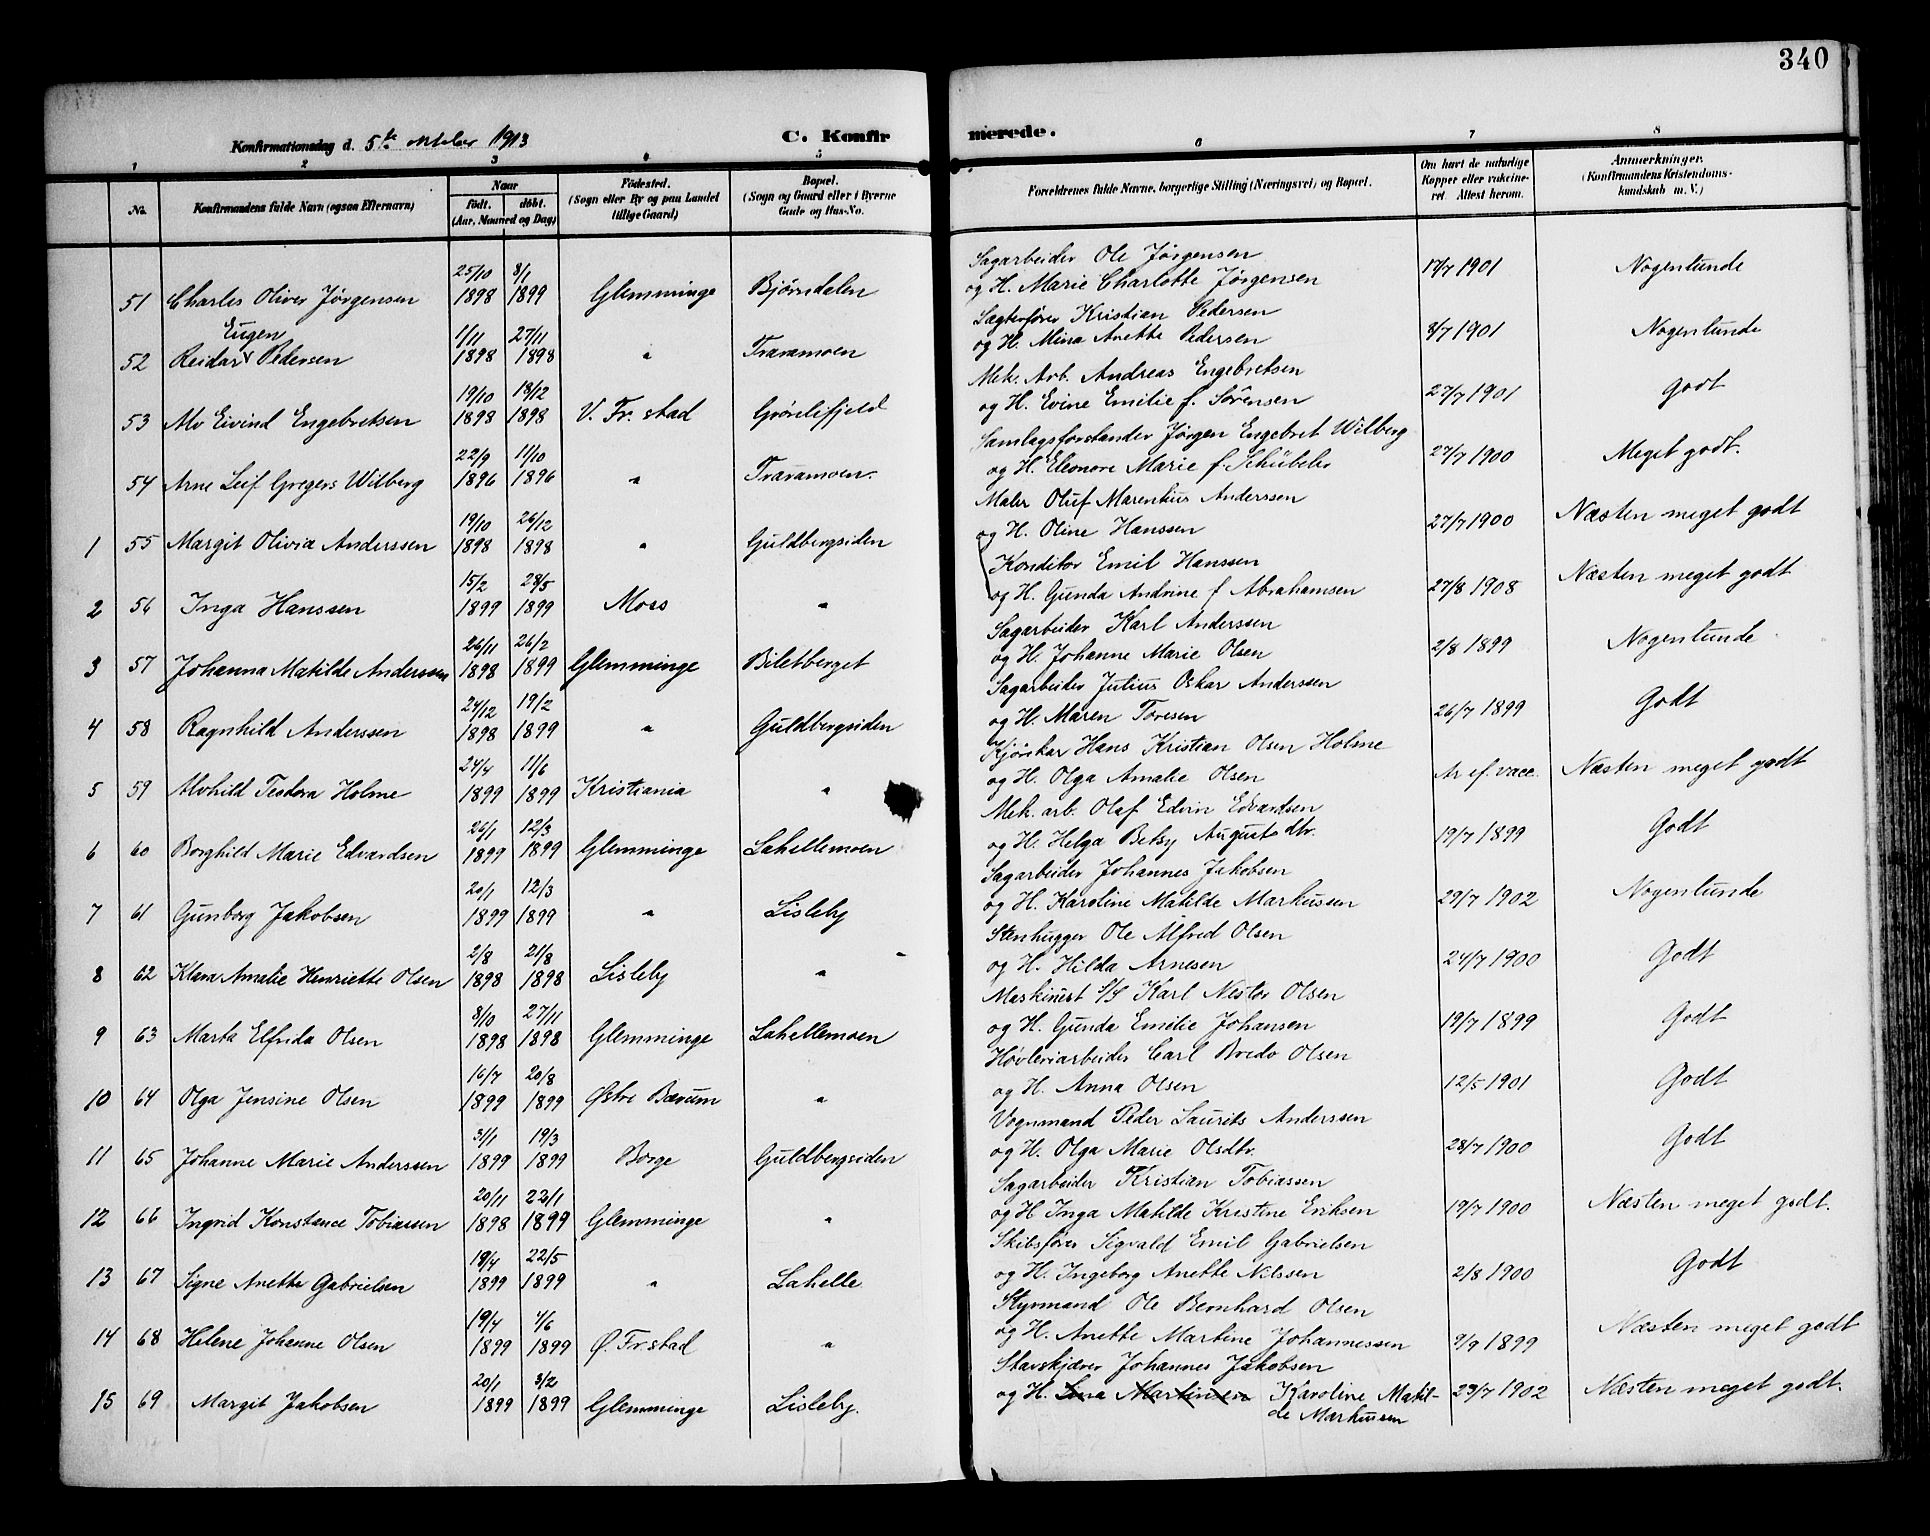 340
Konfirmationsdag d. 5te oktober 1913 C. Konfirmerede.
1 2 3 4 5 6 7 8
No. Konfirmandens fulde Navn (ogsaa Efternavn) Naar født. døbt. (Aar, Maaned og Dag) Fødested. (Sogn eller By og paa Landet tillige Gaard) Bopæl. (Sogn og Gaard eller i Byerne Gade og Hus-No. Forældrenes fulde Navne, borgerlige Stilling (Næringsvei) og Bopæl. Om havt de naturlige Kopper eller vaccineret. Attest herom. Anmerkninger. (Konfirmandens Kristendomskundskab m. V.)
51 Charles Oliver Jørgensen 25/10 1898 8/1 1899 Glemminge Bjørndalen Sagarbeider Ole Jørgensen og H. Marie Charlotte Jørgensen 17/7 1901 Nogenlunde
52 Reidar Eugen Pedersen 1/11 1898 27/11 1898 " Traramoen Kristian Pedersen og H. Mina Anette Pedersen 8/7 1901 Nogenlunde
53 Alv Eivind Engebretsen 19/10 1898 18/12 1898 V. Fr.stad Mek. Arb. Andreas Engebretsen og H. Evine Emilie f. Sørensen 27/7 1901 Godt
54 Arne Leif Gregers Wilberg 22/9 1896 11/10 1896 " Traramoen. Samlagsforstander Jørgen Engebret Wilberg og H. Eleonore Marie f. Schübeler 27/7 1900 Meget godt.
1 55 Margit Olivia Anderssen 19/10 1898 26/12 1898 " Guldbergsiden Maler Oluf Marenius Anderssen og H. Oline Hanssen 27/7 1900 Næsten meget godt
2 56 Inga Hanssen 15/2 1899 28/5 1899 Moss " Konditor Emil Hanssen og H. Gunda Andrine f Abrahamsen 27/8 1908 Næsten meget godt
3 57 Johanna Matilde Anderssen 26/11 1898 26/2 1899 Glemminge Biletberget Sagarbeider Karl Anderssen og H. Johanne Marie Olsen 2/8 1899 Nogenlunde
4 58 Ragnhild Anderssen 24/12 1898 19/2 1899 " Guldbergsiden Sagarbeider Julius Oskar Anderssen og H. Maren Toresen 26/7 1899 Godt
5 59 Alvhild Teodora Holme 24/4 1899 11/6 1899 Kristiania " Kjøskar Hans Kristian Olsen Holme og H. Olga Amalie Olsen Ar ef. vacc. Næsten meget godt
6 60 Borghild Marie Edvardsen 26/1 1899 12/3 1899 Glemminge Lahellemoen Mek. arb. Olaf Edvin Edvardsen og H. Helga Betsy Augustdtr. 19/7 1899 Godt
7 61 Gunborg Jakobsen 20/1 1899 12/3 1899 " Lisleby Sagarbeider Johannes Jakobsen og H. Karoline Matilde Markussen 29/7 1902 Nogenlunde
8 62 Klara Amalie Henriette Olsen 2/8 1898 21/8 1898 Lisleby " Stenhugger Ole Alfred Olsen og H. Hilda Arnesen 24/7 1900 Godt
9 63 Marta Elfrida Olsen 8/10 1898 27/11 1898 Glemminge Lahellemoen Maskinist Karl Nestor Olsen og H. Gunda Emilie Johansen 19/7 1899 Godt
10 64 Olga Jensine Olsen 16/7 1899 20/8 1899 Østre Bærum " Høvleriarbeider Carl Bredo Olsen og H. Anna Olsen 12/5 1901 Godt
11 65 Johanne Marie Anderssen 3/1 1899 19/3 1899 Borge Guldbergsiden Vognmand Peder Laurits Anderssen og H. Olga Marie Olsdtr. 28/7 1900 Godt
12 66 Ingrid Konstance Tobiassen 20/11 1898 22/1 1899 Glemminge " Sagarbeider Kristian Tobiassen og H Inga Matilde Kristine Eriksen 19/7 1900 Næsten meget godt.
13 67 Signe Anette Gabrielsen 19/4 1899 22/5 1899 " Lahelle Skibsfører Sigvald Emil Gabrielsen og H. Ingeborg Anette Nilssen 2/8 1900 Godt
14 68 Helene Johanne Olsen 19/4 1899 4/6 1899 Ø. Fr.stad " Styrmand Ole Bernhard Olsen og H. Anette Martine Johannessen 9/9 1899 Næsten meget godt
15 69 Margit Jakobsen 20/1 1899 3/2 1899 Glemminge Lisleby. Stavskjærer Johannes Jakobsen og H. Lina Martinsen Karoline Matilde Markussen 29/7 1902 Næsten meget godt.